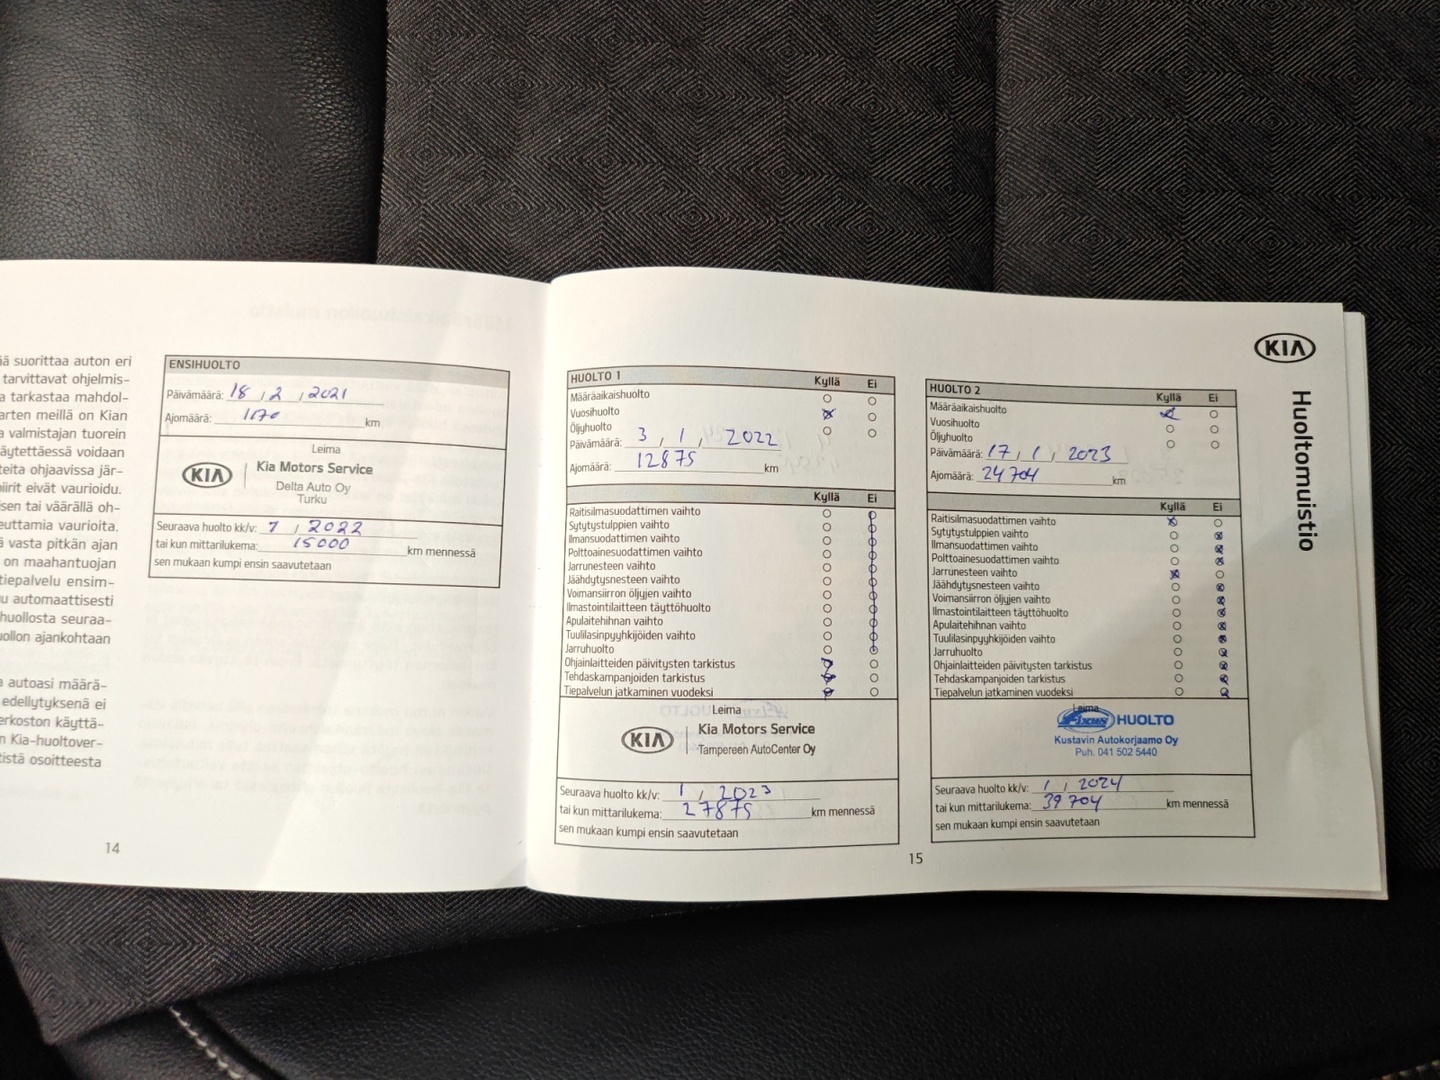 ää suorittaa auton eri
tarvittavat ohjelmis-
a tarkastaa mahdol-
arten meillä on Kian
a valmistajan tuorein
äytettäessä voidaan
teita ohjaavissa jär-
iirit eivät vaurioidu.
isen tai väärällä oh-
euttamia vaurioita.
ä vasta pitkän ajan
on maahantuojan
tiepalvelu ensim-
u automaattisesti
huollosta seuraa-
uollon ajankohtaan
a autoasi määrä-
edellytyksenä ei
erkoston käyttä-
n Kia-huoltover-
tistä osoitteesta
14
ENSIHUOLTO
Päivämäärä: 18 , 2 , 2021
Ajomäärä: km
Leima
KIA Kia Motors Service
Delta Auto Oy
Turku
Seuraava huolto kk/v: 1 , 2022
tai kun mittarilukema: 15000 km mennessä
sen mukaan kumpi ensin saavutetaan
HUOLTO 1 Kyllä Ei
Määräaikaishuolto
Vuosihuolto
Öljyhuolto
Päivämäärä: 3 , 1 , 2022
Ajomäärä: 12875 km
Kyllä Ei
Raitisilmasuodattimen vaihto
Sytytystulppien vaihto
Ilmansuodattimen vaihto
Polttoainesuodattimen vaihto
Jarrunesteen vaihto
Jäähdytysnesteen vaihto
Voimansiirron öljyjen vaihto
Ilmastointilaitteen täyttöhuolto
Apulaitehihnan vaihto
Tuulilasinpyyhkijöiden vaihto
Jarruhuolto
Ohjainlaitteiden päivitysten tarkistus
Tehdaskampanjoiden tarkistus
Tiepalvelun jatkaminen vuodeksi
Leima
KIA Kia Motors Service
Tampereen AutoCenter Oy
Seuraava huolto kk/v: 1 , 2023
tai kun mittarilukema: 27875 km mennessä
sen mukaan kumpi ensin saavutetaan
HUOLTO 2 Kyllä Ei
Määräaikaishuolto
Vuosihuolto
Öljyhuolto
Päivämäärä: 17 , 1 , 2023
Ajomäärä: 24704 km
Kyllä Ei
Raitisilmasuodattimen vaihto
Sytytystulppien vaihto
Ilmansuodattimen vaihto
Polttoainesuodattimen vaihto
Jarrunesteen vaihto
Jäähdytysnesteen vaihto
Voimansiirron öljyjen vaihto
Ilmastointilaitteen täyttöhuolto
Apulaitehihnan vaihto
Tuulilasinpyyhkijöiden vaihto
Jarruhuolto
Ohjainlaitteiden päivitysten tarkistus
Tehdaskampanjoiden tarkistus
Tiepalvelun jatkaminen vuodeksi
Leima
Fixus HUOLTO
Kustavin Autokorjaamo Oy
Puh. 041 502 5440
Seuraava huolto kk/v: 1 , 2024
tai kun mittarilukema: 39704 km mennessä
sen mukaan kumpi ensin saavutetaan
15
KIA
Huoltomuistio